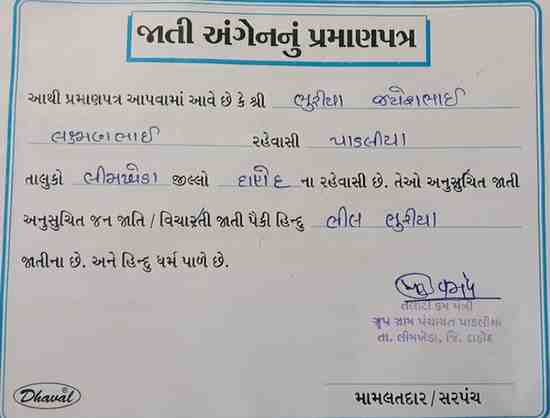 જાતી અંગેનનું પ્રમાણપત્ર
આથી પ્રમાણપત્ર આપવામાં આવે છે કે શ્રી ભુરીયા જયેશભાઈ
લક્ષ્મણભાઈ રહેવાસી પાડલીયા
તાલુકો લીમખેડા જીલ્લો દાહોદ ના રહેવાસી છે. તેઓ અનુસુચિત જાતી
અનુસુચિત જન જાતિ / વિચારતી જાતી પૈકી હિન્દુ ભીલ ભુરીયા
જાતીના છે. અને હિન્દુ ધર્મ પાળે છે.
તલાટી કમ મંત્રી
ગ્રુપ ગ્રામ પંચાયત પાડલીયા
તા. લીમખેડા, જિ. દાહોદ
Dhaval
મામલતદાર / સરપંચ